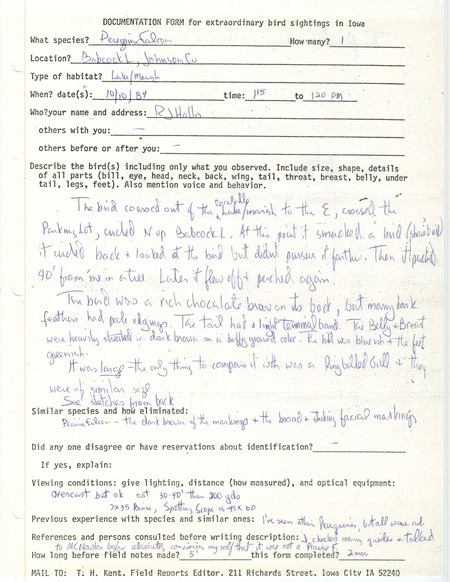 DOCUMENTATION FORM for extraordinary bird sightings in Iowa
What species? Peregrine Falcon How many? 1
Location? Babcock L, Johnson Co
Type of habitat? Lake/Marsh
When? date(s): 10/10/84 time: 115 to 120 PM
Who? your name and address: RJ Hollis
others with you: —
others before or after you: —
Describe the bird(s) including only what you observed. Include size, shape, details
of all parts (bill, eye, head, neck, back, wing, tail, throat, breast, belly, under
tail, legs, feet). Also mention voice and behavior.
The bird coursed out of the Lake/marsh to the E, crossed the
Parking Lot, circled N up Babcock L. At this point it smacked a bird (shorebird)
it circled back + looked at the bird but didn't pursue it farther. Then it perched
40' from me in a tree. Later it flew off + perched again.
The bird was a rich chocolate brown on its back, but many back
feathers had pale edgings. The tail had a light terminal band. The Belly + Breast
were heavily streaked w. dark brown on a buffy ground color. the bill was blueish + the feet
greenish.
It was large - the only thing to compare it with was a Ringbilled Gull + they
were of similar size
See sketches from back
Similar species and how eliminated:
Prairie Falcon - the dark brown of the markings + the broad + striking facial markings
Did any one disagree or have reservations about identification? —
If yes, explain:
Viewing conditions: give lighting, distance (how measured), and optical equipment:
Overcast but ok est 30-40' then 200 yds
7x35 Binoc, Spotting Scope 15-45x60
Previous experience with species and similar ones: I've seen other Peregrines, but all were ad.
References and persons consulted before writing description: I checked many guides + talked
to McNow before absolutely convincing myself that it was not a Prairie F.
How long before field notes 5' this form completed? 2 mos
MAIL TO: T. H. Kent, Field Reports Editor, 211 Richards Street, Iowa City IA 52240